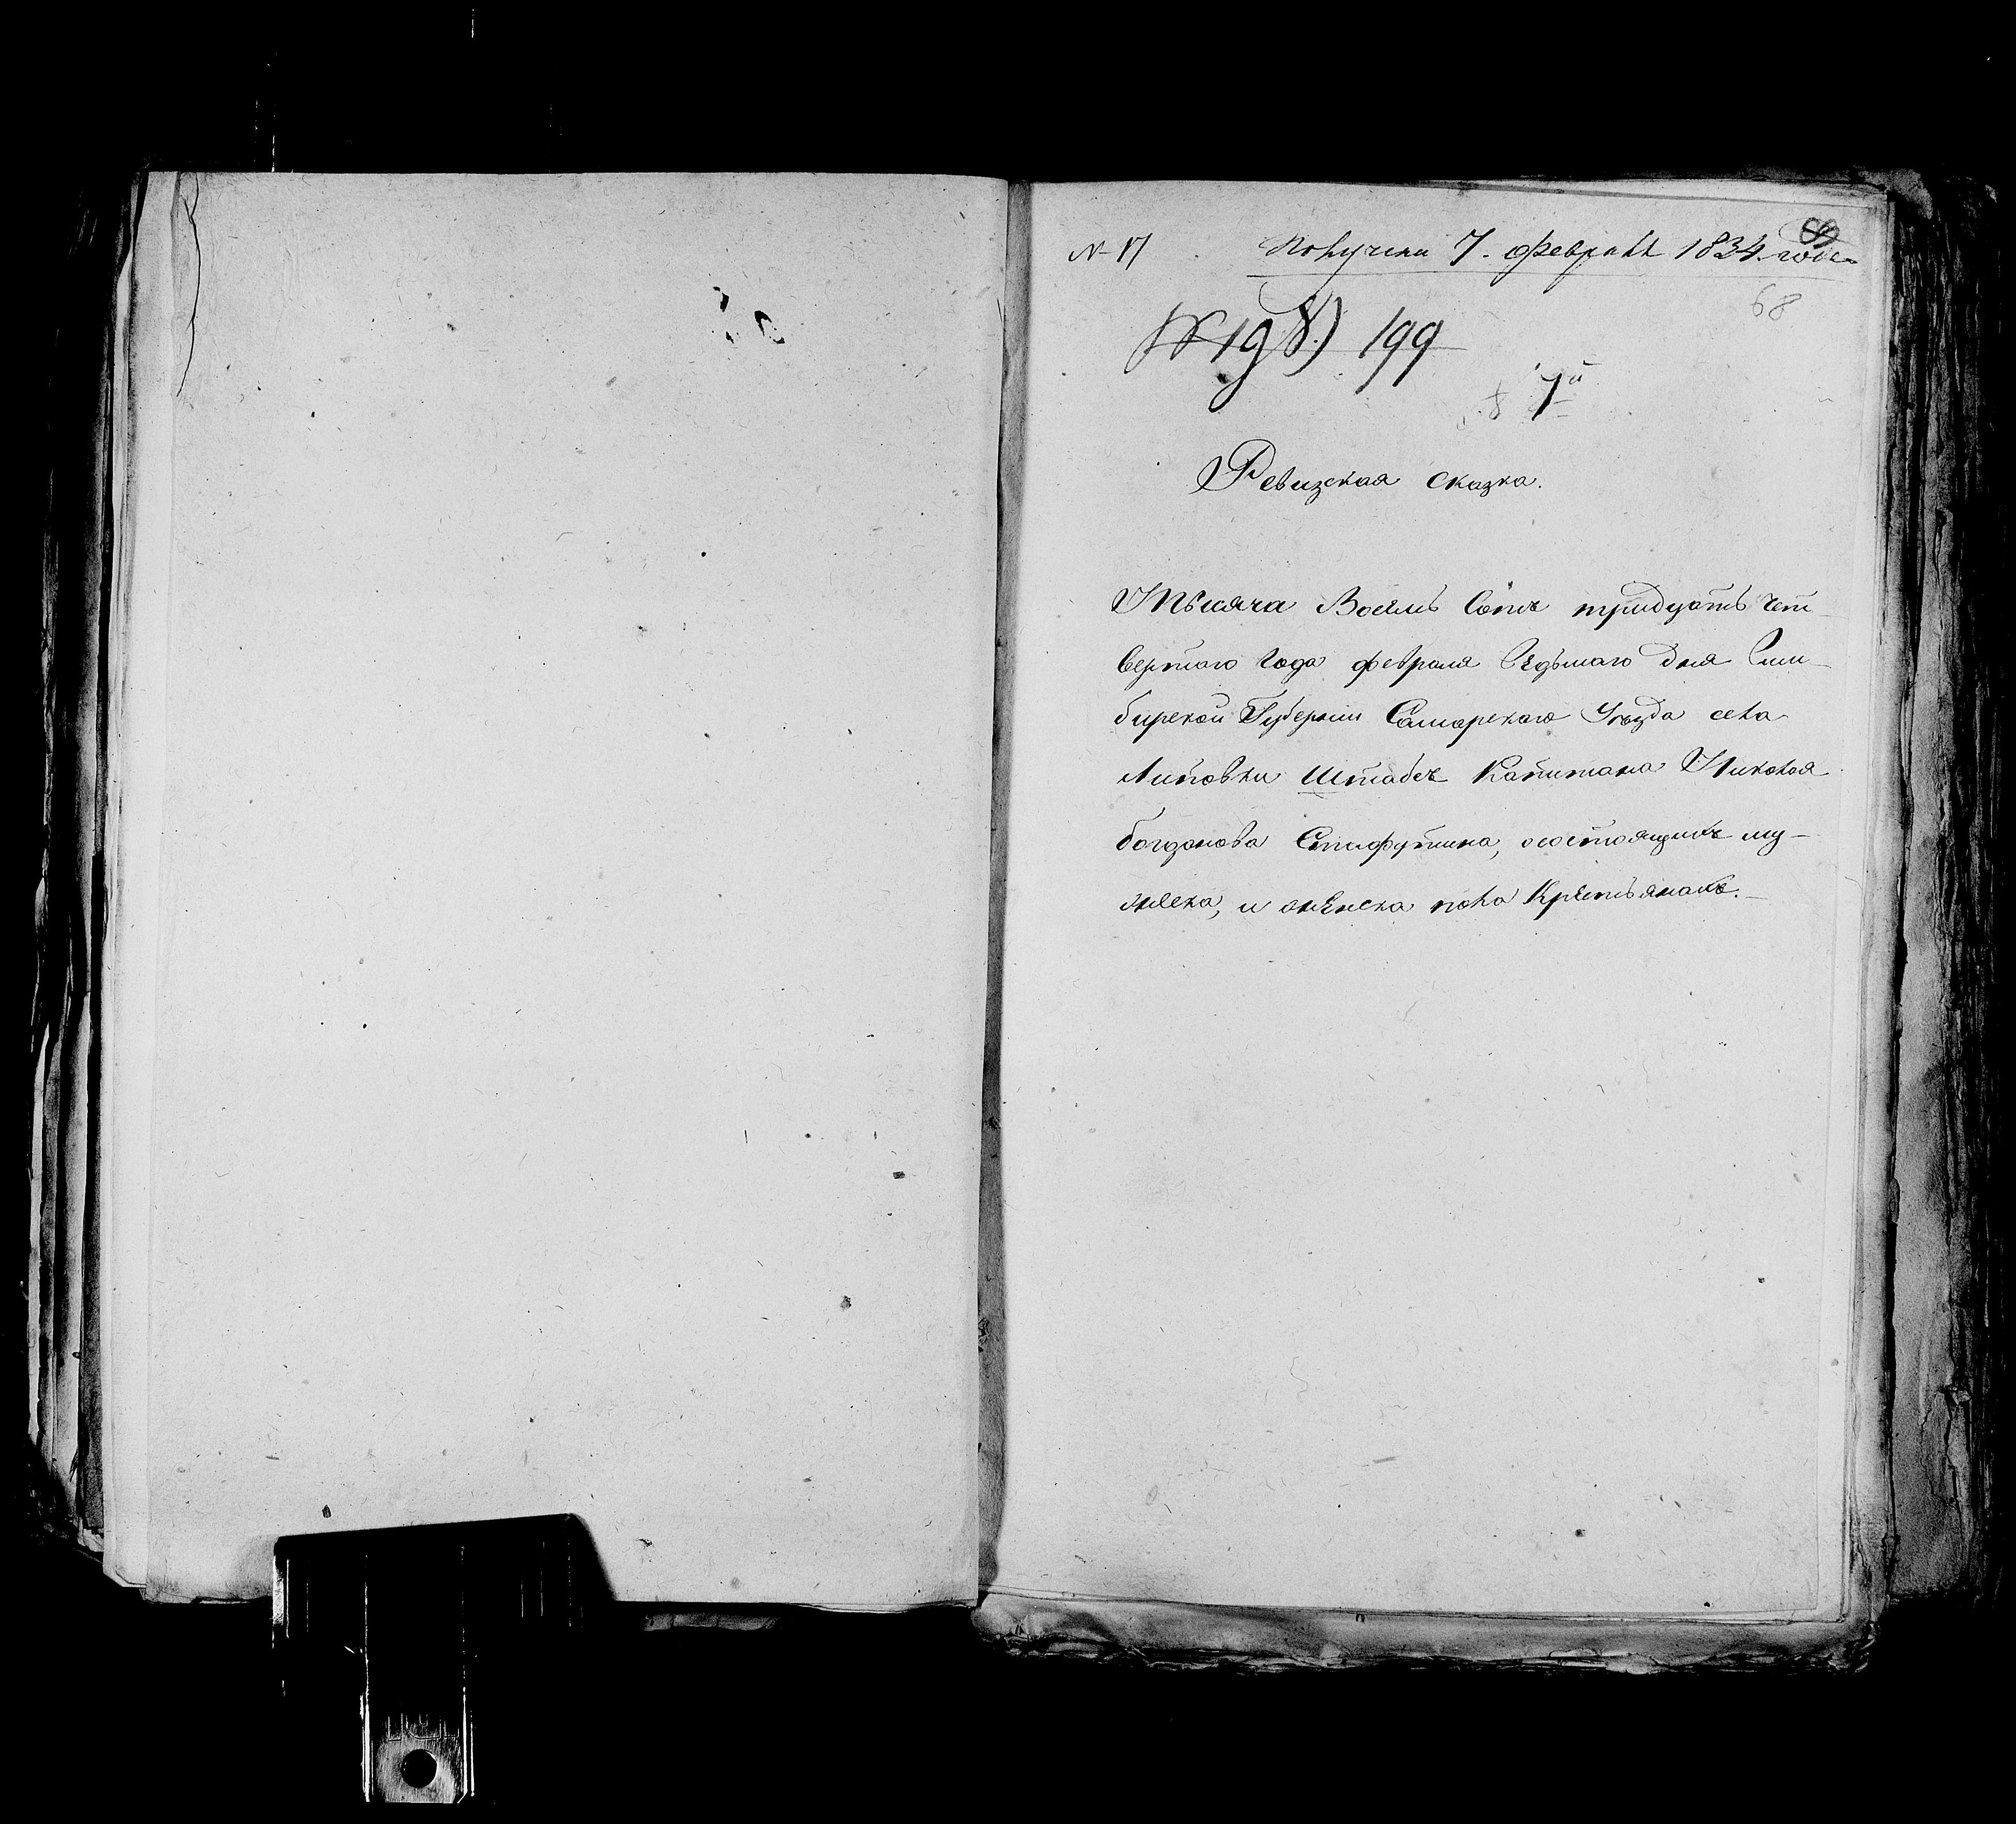 N 17
Получена 7. февраля 1834 года
68
№ 198) 199
7й
Ревизская сказка.
Тысяча Восемь Сотъ тридцать чет-
вертаго Года февраля Седьмаго дня Сим-
бирской Губернии Самарского Уезда села
Липовки Штабсъ Капитана Николая
богданова состоящихъ му-
жеска, и женска пола Крестьянахъ.